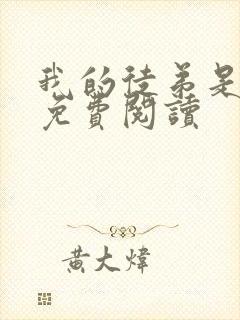 我的徒弟是
免費閱讀
黄大煒